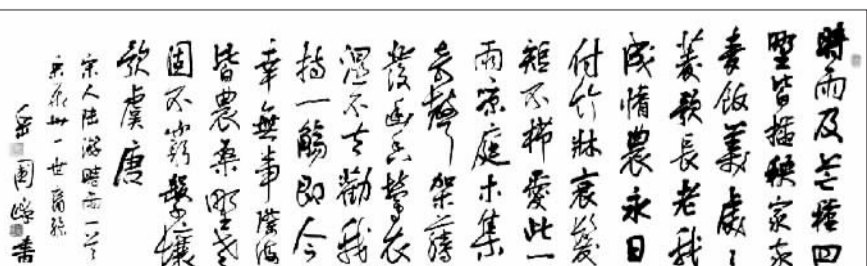 時雨及芒種四
埜皆插秧家家
麥飯美處處
菱歌長老我
成惰農永日
付竹牀衰髮
短不櫛愛此一
雨涼庭木集
奇聲架藤
發幽香鶯衣
濕不去勸我
持一觴即今
幸無事際海
皆農桑野老
固不窮擊壤
歌虞唐
宋人陸游時雨一首
書